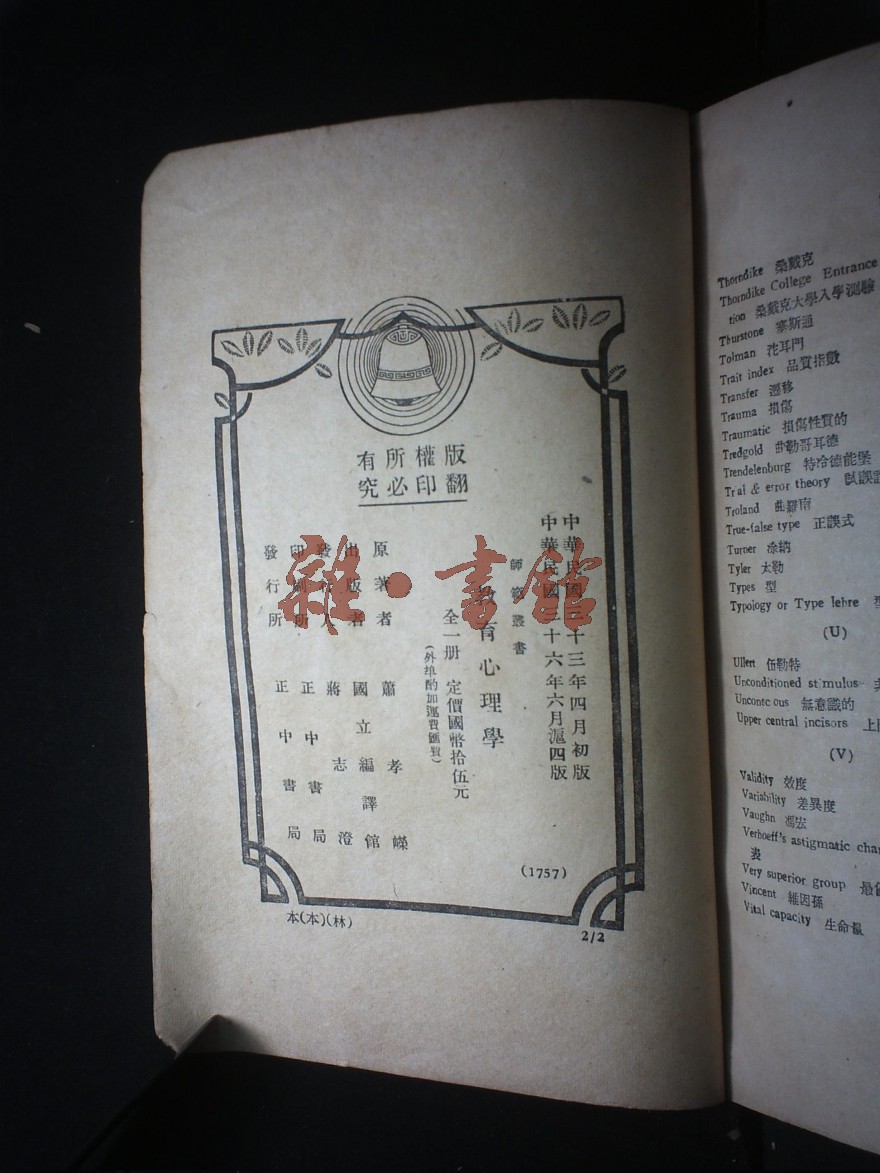 版權所有
翻印必究
中華民國三十三年四月初版
中華民國三十六年六月滬四版
師範叢書
教育心理學
全一册 定價國幣拾伍元
(外埠酌加運費匯費)
原著者 蕭孝嶸
出版者 國立編譯館
發行人 蔣志澄
印刷所 正中書局
發行所 正中書局
(1757)
本(本)(林)
2/2
雜·書館
Thorndike 桑戴克
Thorndike College Entrance
tion 桑戴克大學入學測驗
Thurstone 塞斯通
Tolman
Trait index 品質指數
Transfer 遷移
Trauma 損傷
Traumatic 損傷性質的
Tredgold 曲勒哥耳德
Trendelenburg 特冷德能堡
Tr al & error theory
Troland 曲羅南
True-false type 正誤式
Turner 涂納
Tyler 太勒
Types 型
Typology or Type lehre 型
(U)
Ullert 伍勒特
Unconditioned st mulus
Uncontc ous 無意識的
Upper central incisors 上
(V)
Validity 效度
Variability 差異度
Vaughn 馮宏
Verhoeff's astigmatic char
表
Very superior group 最
Vincent 維因孫
Vital capacity 生命量